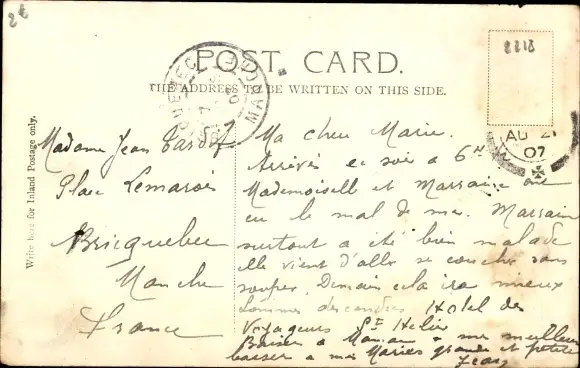 2€
POST CARD.
THE ADDRESS TO BE WRITTEN ON THIS SIDE.
Write here for Inland Postage only.
8218
BRICQUEBEC
MANCHE
AU 21
07
Madame Jean Tardif
Place Lemarois
Bricquebec
Manche
France
Ma cher Marie.
Arrivés ce soir a 6H
Mademoisell et Marraine ont
eu le mal de mer. Marrain
surtout a été bien malade
elle vient d'alle se coucher sans
souper. Demain cela ira mieux
Sommes descendus Hotel des
Voyageurs St Helier
Baiser a Maman & mes meilleurs
baiser a mes Maries grande et petite
Jean